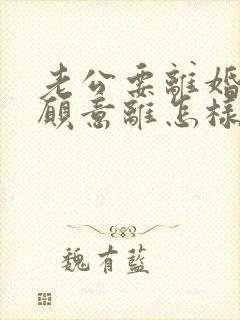 老公要離婚
願意離怎樣
魏有藍